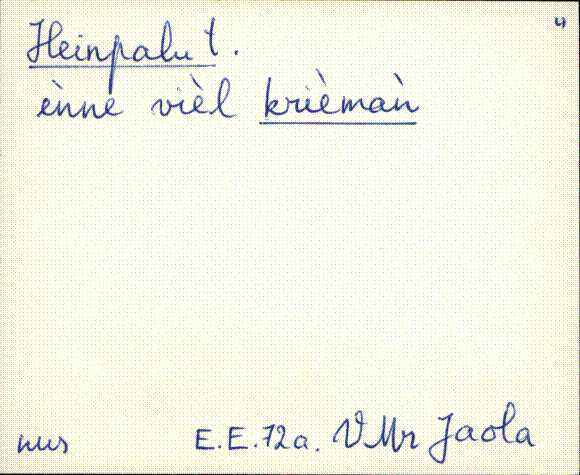 4
Heinpalu t.
ènne vièl krièmaǹ
mus E.E.72a. VMr Jaola